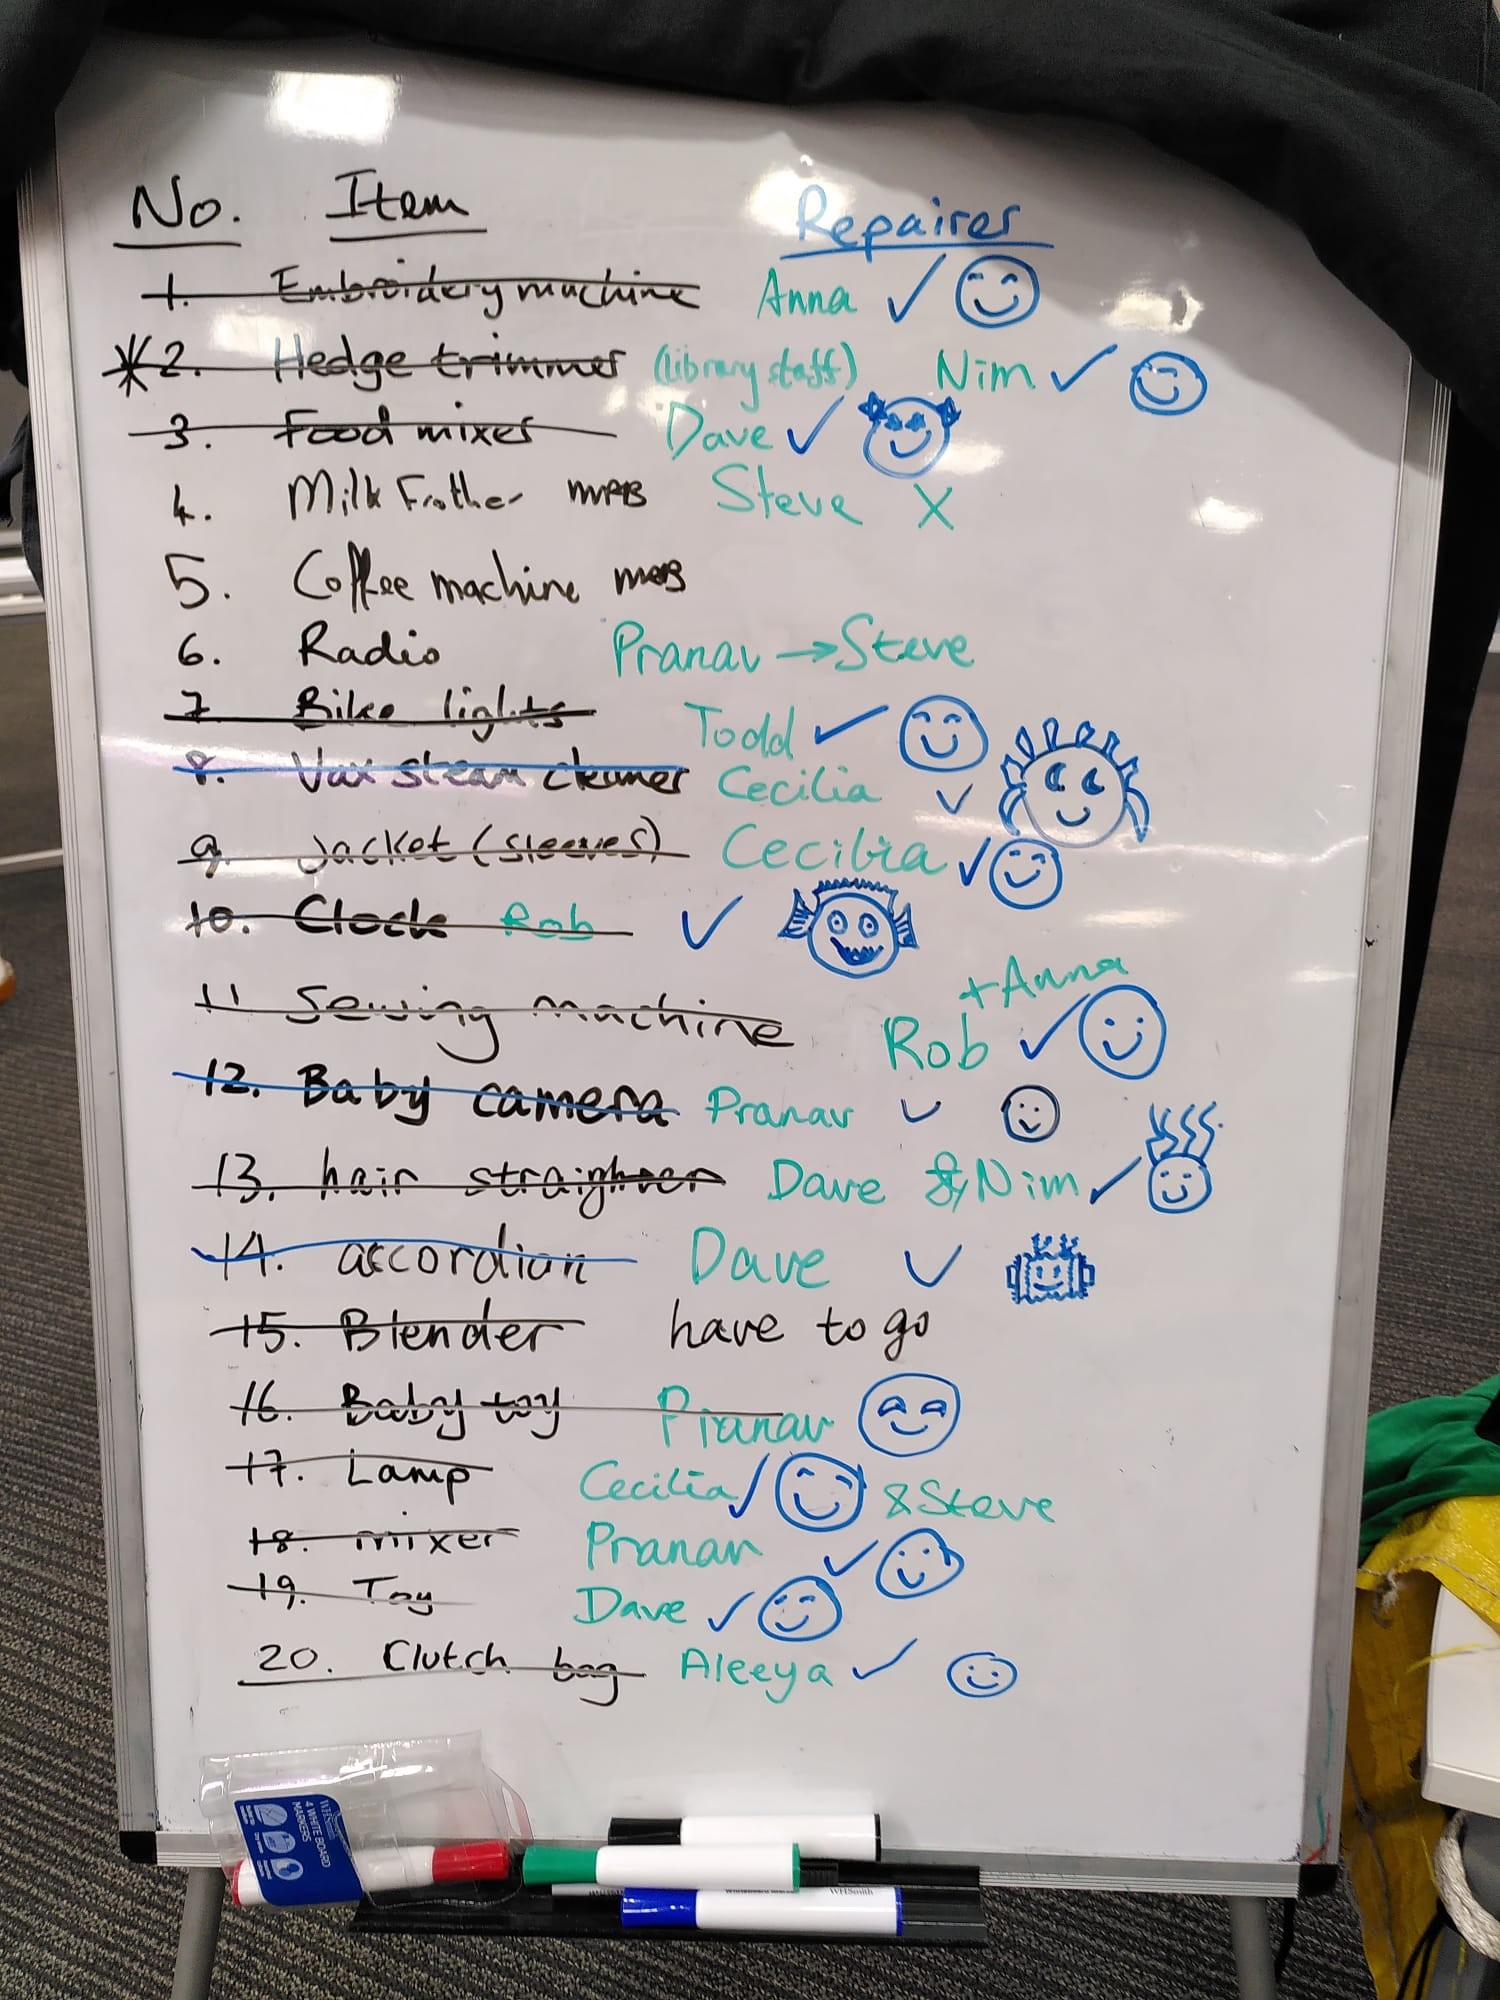 No. Item Repairer
1. Embroidery machine Anna ✓
*2. Hedge trimmer (library staff) Nim ✓
3. Food mixer Dave ✓
4. Milk Frother Steve X
5. Coffee machine
6. Radio Pranav → Steve
7. Bike lights Todd ✓
8. Vax steam cleaner Cecilia ✓
9. Jacket (sleeves) Cecilia ✓
10. Clock Rob ✓
+ Anna
11 Sewing machine Rob ✓
12. Baby camera Pranav ✓
13. hair straightner Dave & Nim ✓
14. accordian Dave ✓
15. Blender have to go
16. Baby toy Pranav
17. Lamp Cecilia ✓ & Steve
18. mixer Pranav ✓
19. Toy Dave ✓
20. Clutch bag Aleeya ✓
WHSmith
4 WHITEBOARD
MARKERS
WHSmith